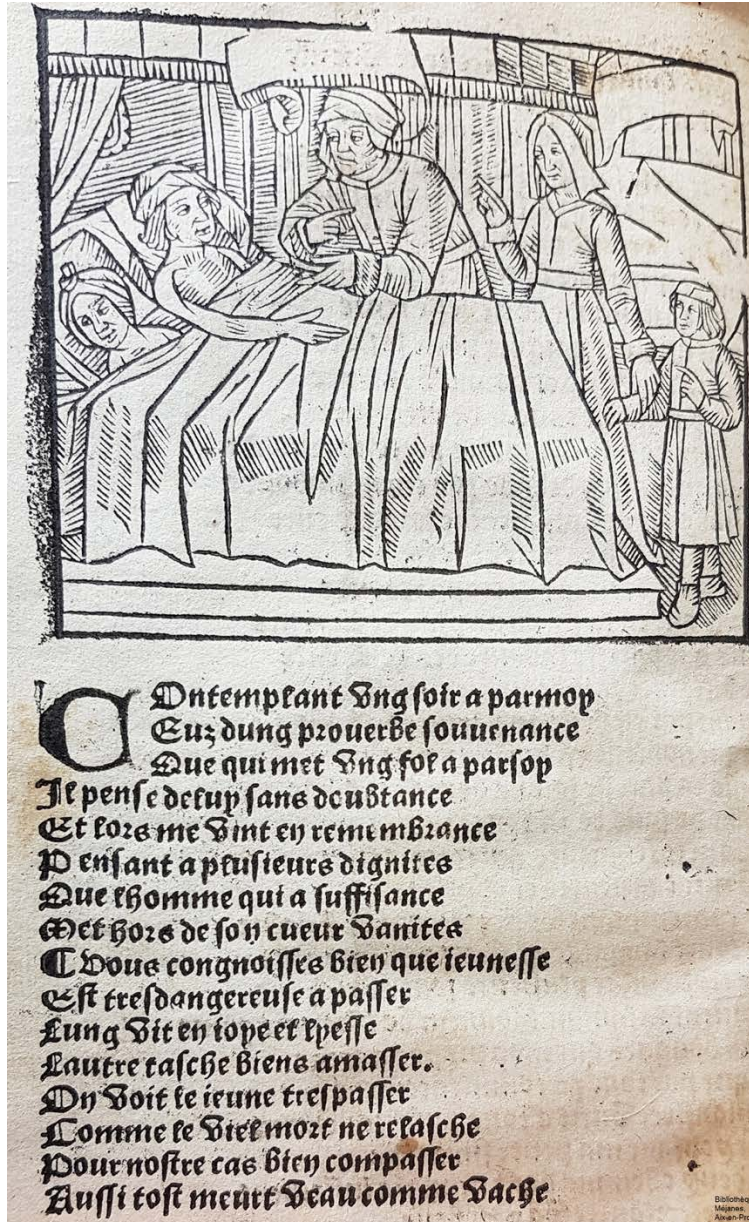 COntemplant vng soir a parmoy
Euz dung prouerbe souuenance
Que qui met vng fol a parsoy
Il pense deluy sans doubtance
Et lors me vint en remembrance
Pensant a plusieurs dignites
Que lhomme qui a suffisance
Met hors de son cueur vanites
¶ Vous congnoisses bien que ieunesse
Est tresdangereuse a passer
Lung vit en ioye et lyesse
Lautre tasche biens amasser.
On voit le ieune trespasser
Comme le viel mort ne relasche
Pour nostre cas bien compasser
Aussi tost meurt veau comme vache
Bibliothèq
Méjanes
Aix-en-Pro